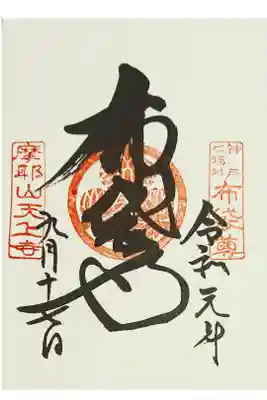 神戸七福神
布袋尊
令和元年
布袋尊
摩耶山天上寺
九月十六日